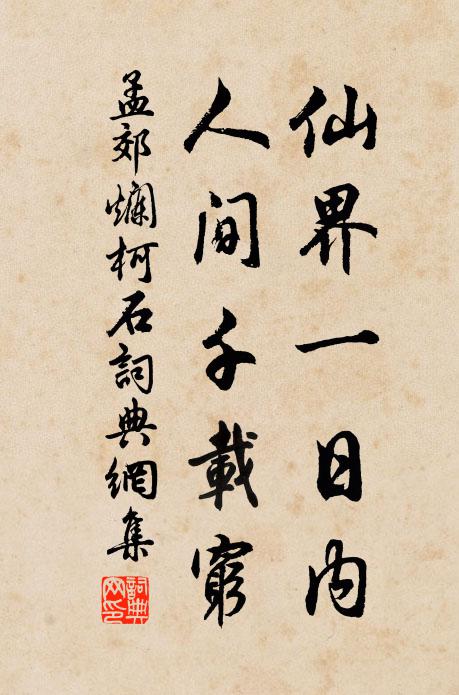 仙界一日内
人间千載窮
孟郊爛柯石詞典網集
詞典网印